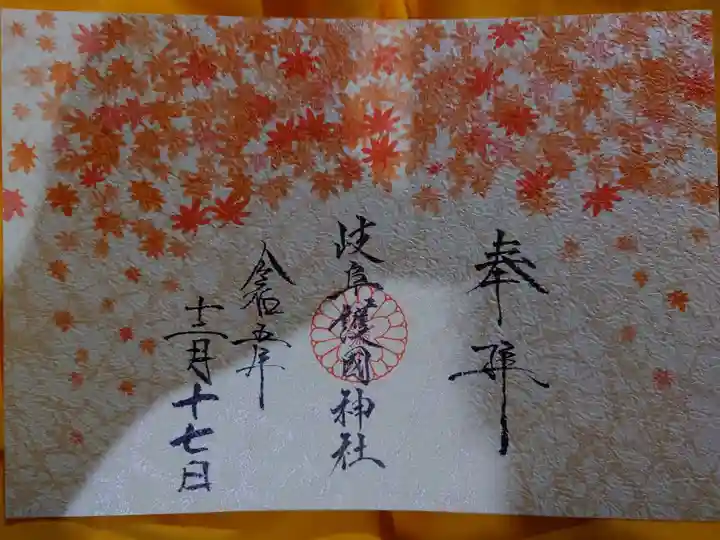 奉拝
岐阜護國神社
令和五年
十二月十七日